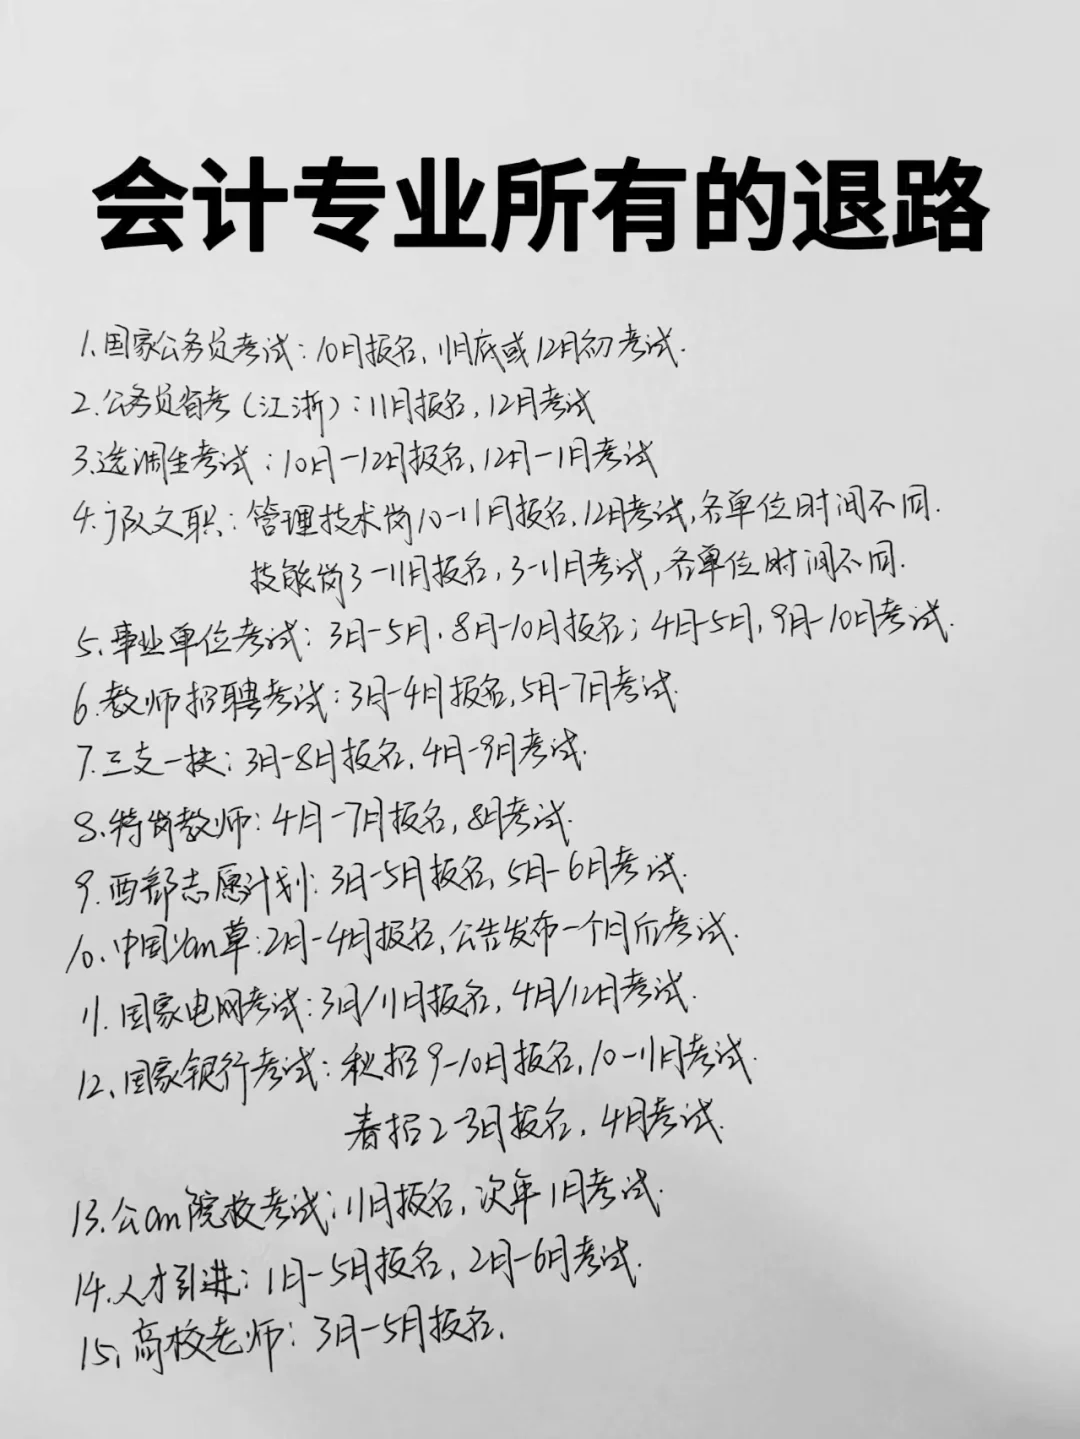 会计专业所有的退路
1、国家公务员考试：10月报名，11月底或12月初考试.
2.公务员省考（江浙）：11月报名，12月考试
3.选调生考试：10月-12月报名，12月-1月考试
4.j队文职：管理技术岗10-11月报名，12月考试，各单位时间不同.
技能岗3-11月报名，3-11月考试，各单位时间不同.
5.事业单位考试：3月-5月，8月-10月报名；4月-5月，9月-10月考试.
6.教师招聘考试：3月-4月报名，5月-7月考试.
7.三支一扶：3月-8月报名，4月-9月考试.
8.特岗教师：4月-7月报名，8月考试.
9.西部志愿计划：3月-5月报名，5月-6月考试.
10、中国yan草：2月-4月报名，公告发布一个月后考试.
11.国家电网考试：3月/11月报名，4月/12月考试.
12、国家银行考试：秋招9-10月报名，10-11月考试.
春招2-3月报名，4月考试.
13.公an院校考试：11月报名，次年1月考试.
14.人才引进：1月-5月报名，2月-6月考试.
15、高校老师：3月-5月报名.